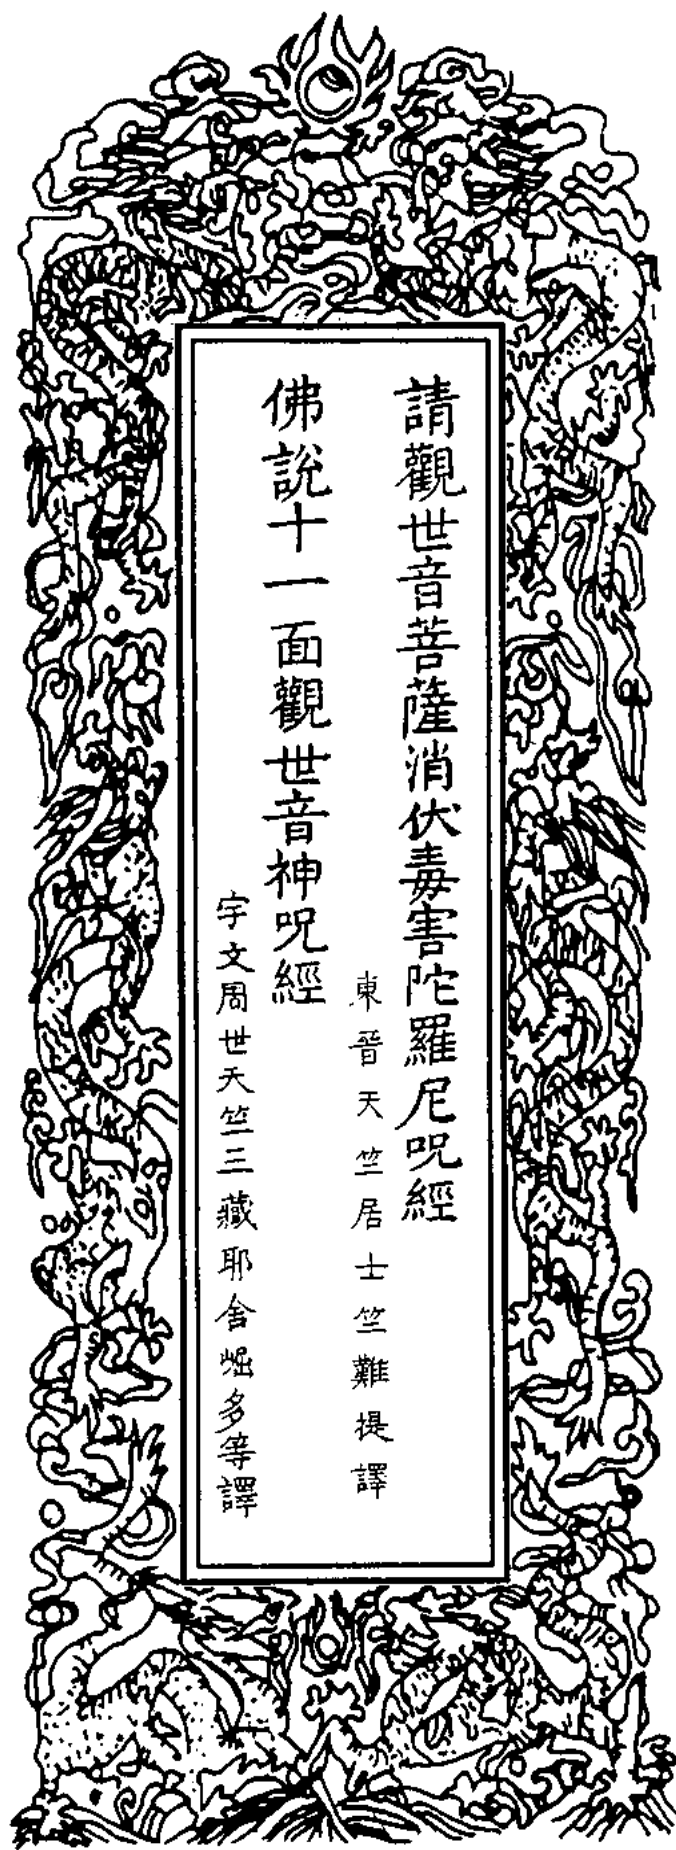 請觀世音菩薩消伏毒害陀羅尼呪經
東晉天竺居士竺難提譯
佛說十一面觀世音神呪經
宇文周世天竺三藏耶舍崛多等譯